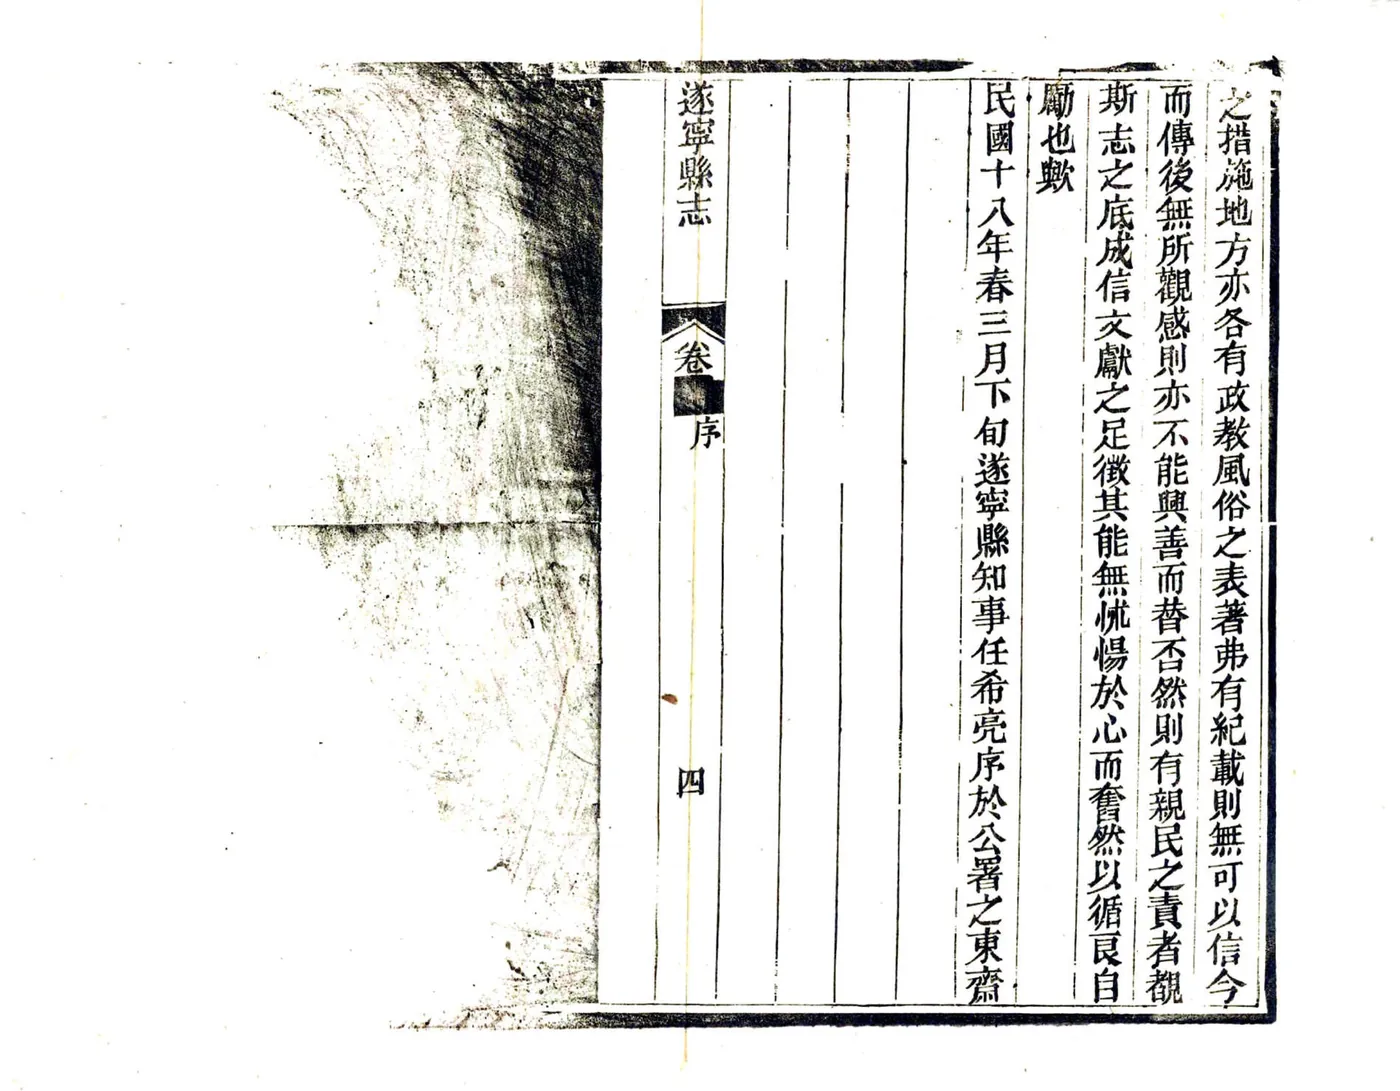 之措施地方亦各有政教風俗之表著弗有紀載則無可以信今
而傳後無所觀感則亦不能興善而替否然則有親民之責者覩
斯志之底成信文獻之足徵其能無怵惕於心而奮然以循良自
勵也歟
民國十八年春三月下旬遂寧縣知事任希亮序於公署之東齋
遂寧縣志
卷
序
四